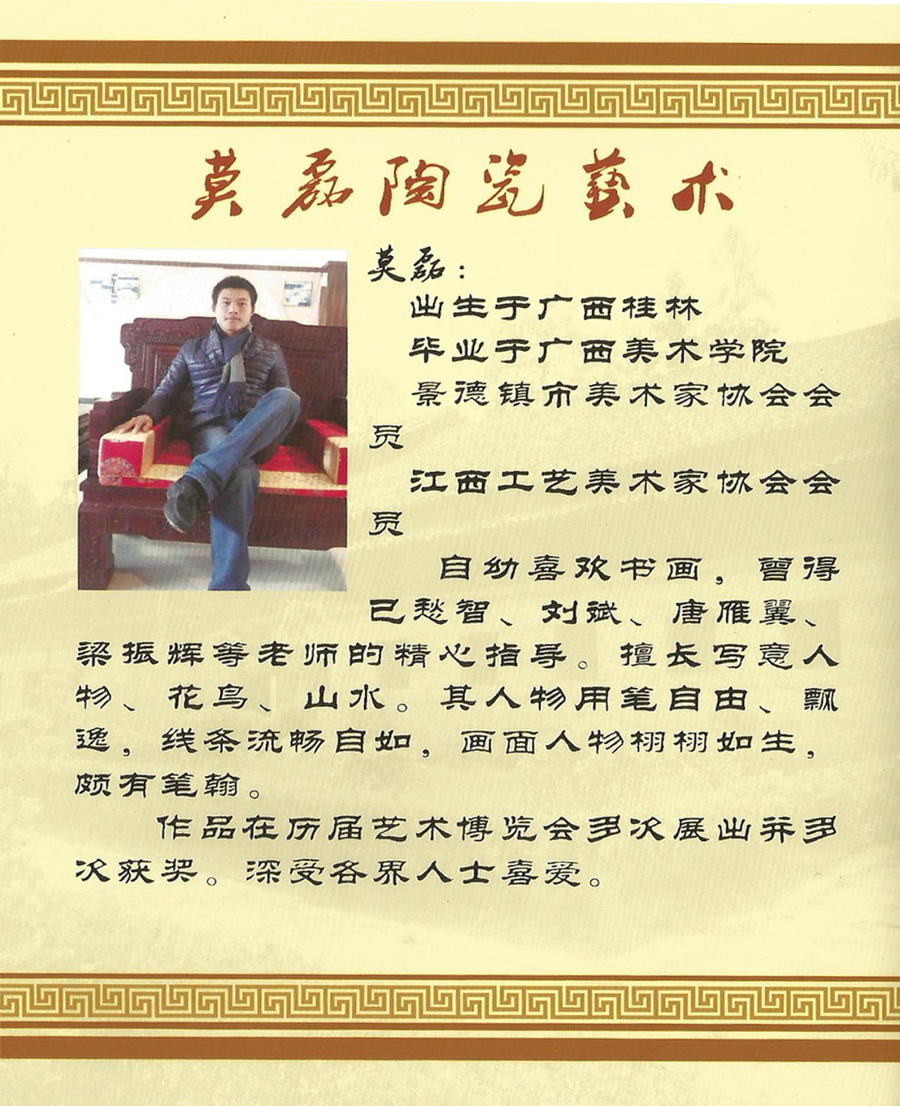 莫磊陶瓷藝术
莫磊：
出生于广西桂林
毕业于广西美术学院
景德镇市美术家协会会
员
江西工艺美术家协会会
员
自幼喜欢书画，曾得
已愁智、刘斌、唐雁翼、
梁振辉等老师的精心指导。擅长写意人
物、花鸟、山水。其人物用笔自由、飘
逸，线条流畅自如，画面人物栩栩如生，
颇有笔翰。
作品在历届艺术博览会多次展出并多
次获奖。深受各界人士喜爱。